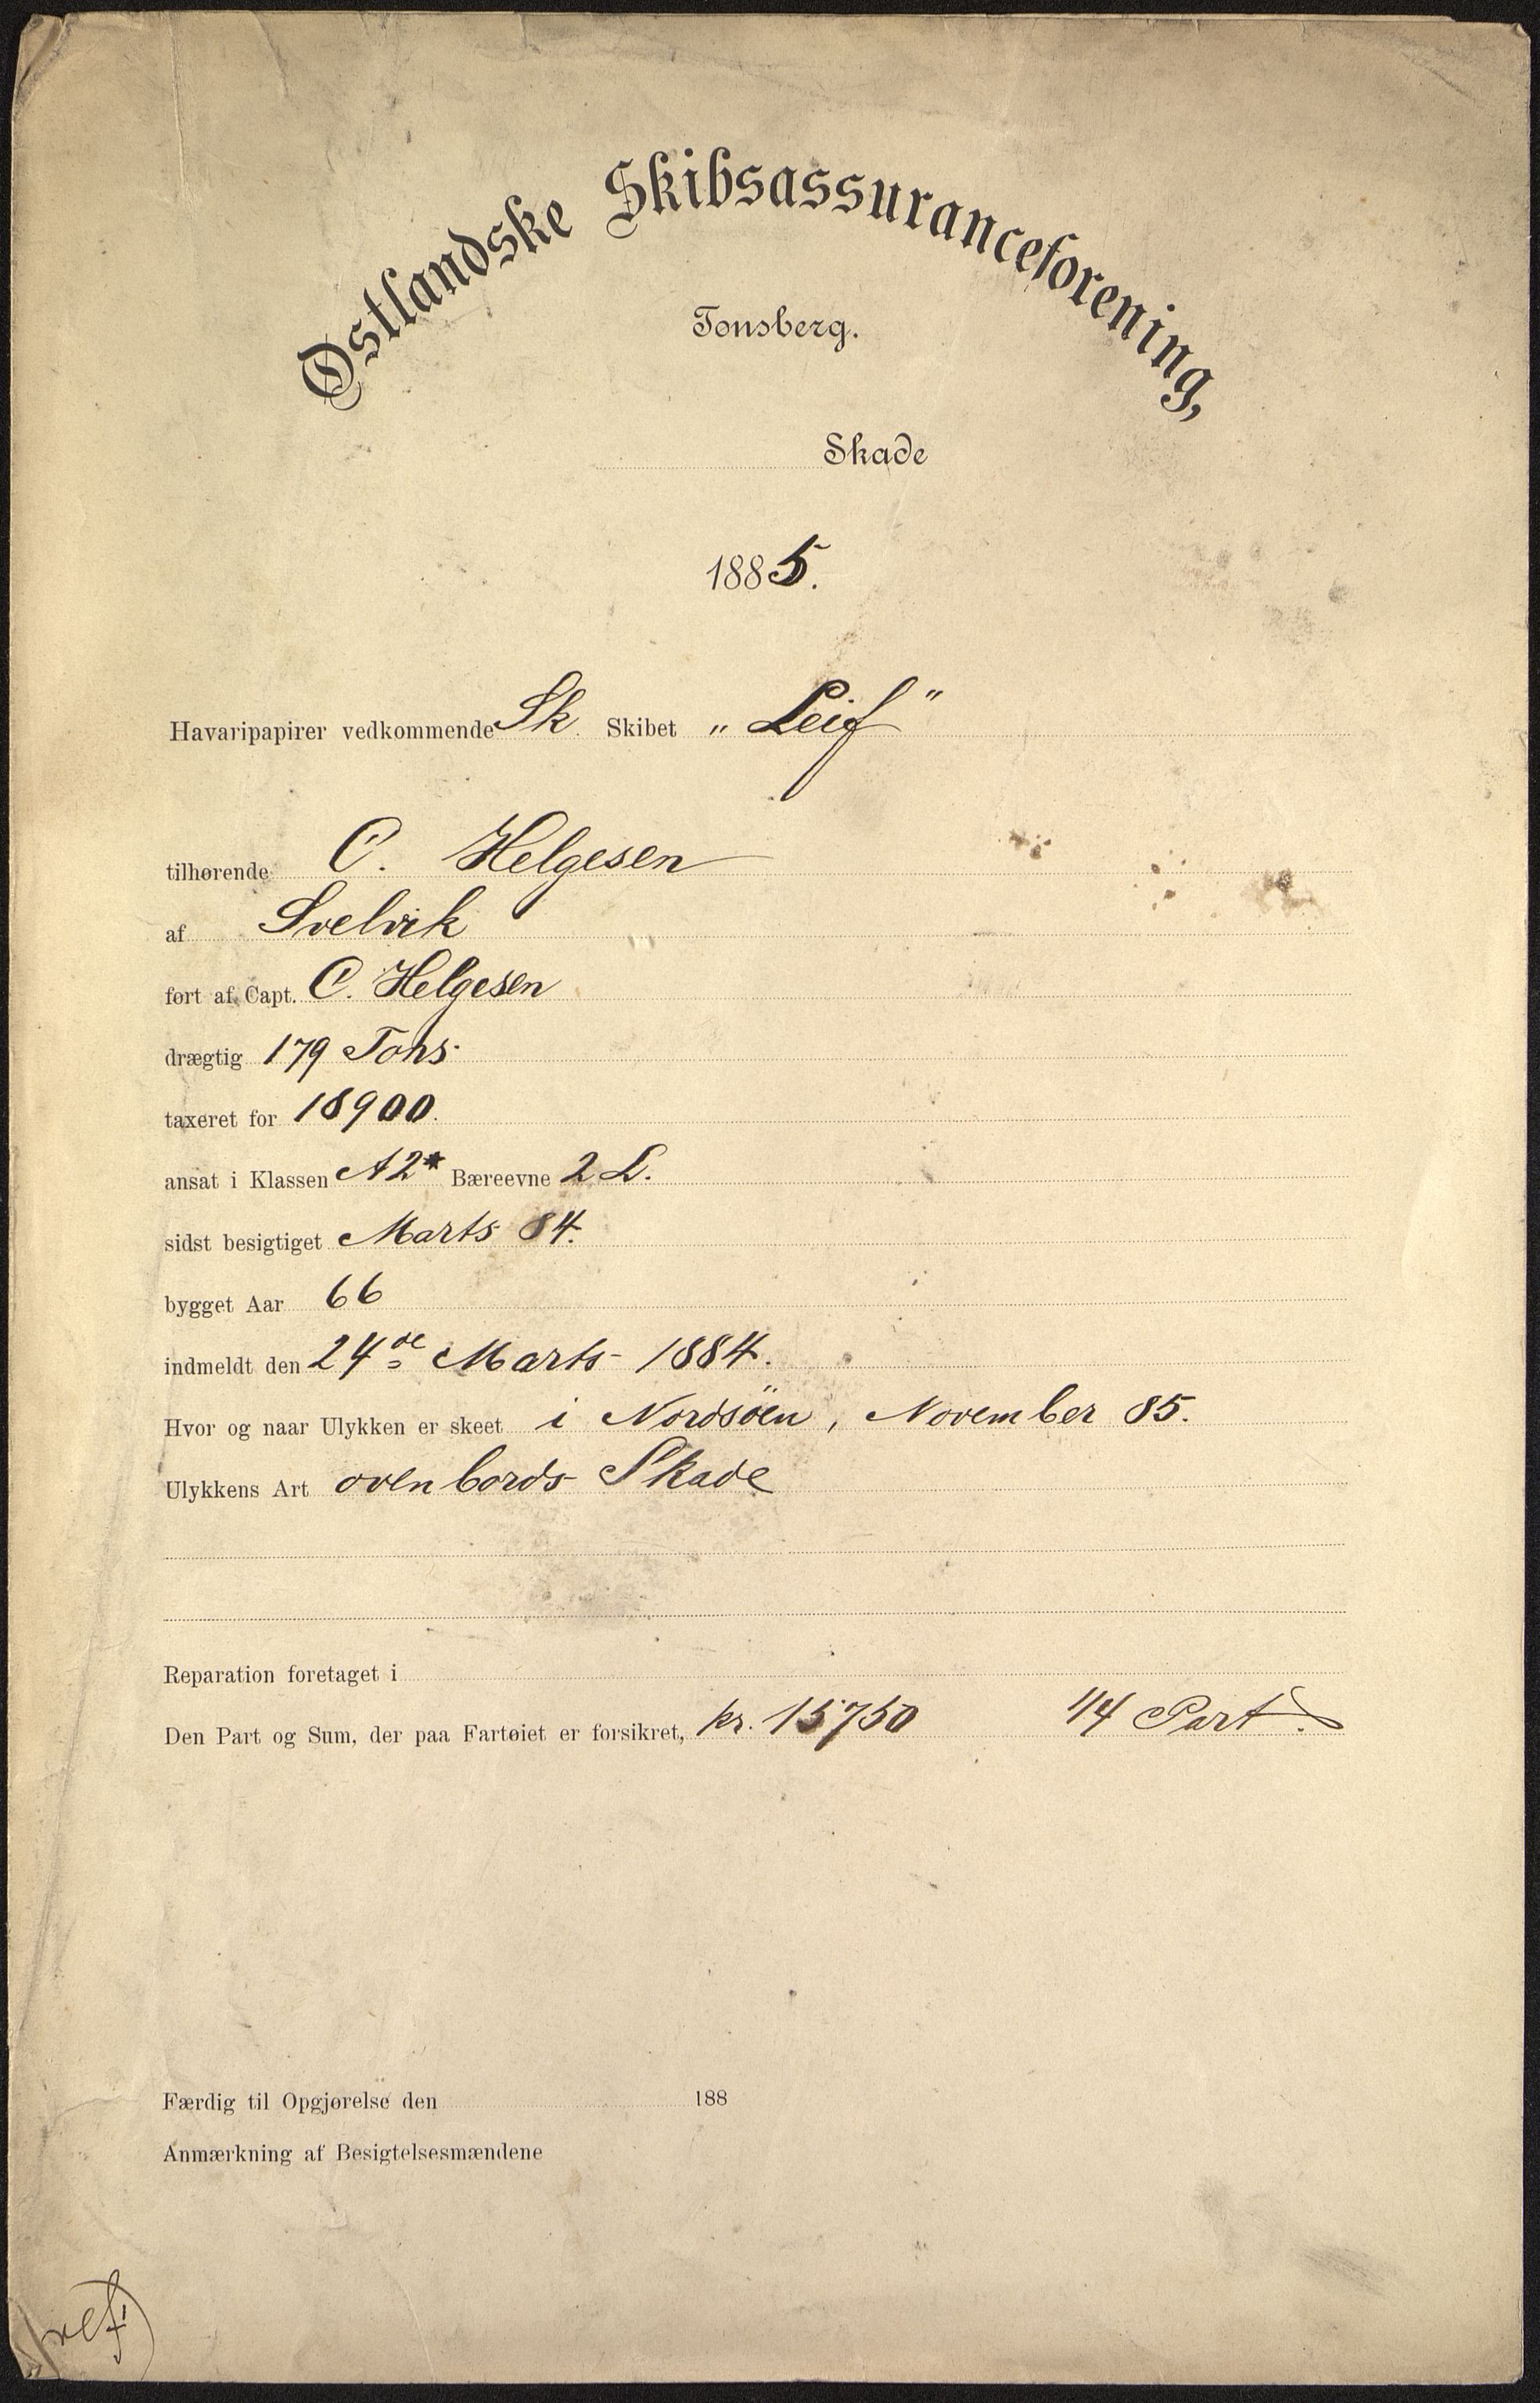 Østlandske Skibsassuranceforening,
Tønsberg.
Skade
1885.
Havaripapirer vedkommende Sk. Skibet „Leif"
tilhørende C. Helgesen
af Svelvik
ført af Capt. C. Helgesen
drægtig 179 Tons.
taxeret for 18900.
ansat i Klassen A2* Bæreevne 2 L.
sidst besigtiget Marts 84.
bygget Aar 66
indmeldt den 24de Marts 1884.
Hvor og naar Ulykken er skeet i Nordsöen, November 85.
Ulykkens Art ovenbords Skade
Reparation foretaget i
Den Part og Sum, der paa Fartøiet er forsikret, kr. 15750 1/4 Part.
Færdig til Opgjørelse den 188
Anmærkning af Besigtelsesmændene